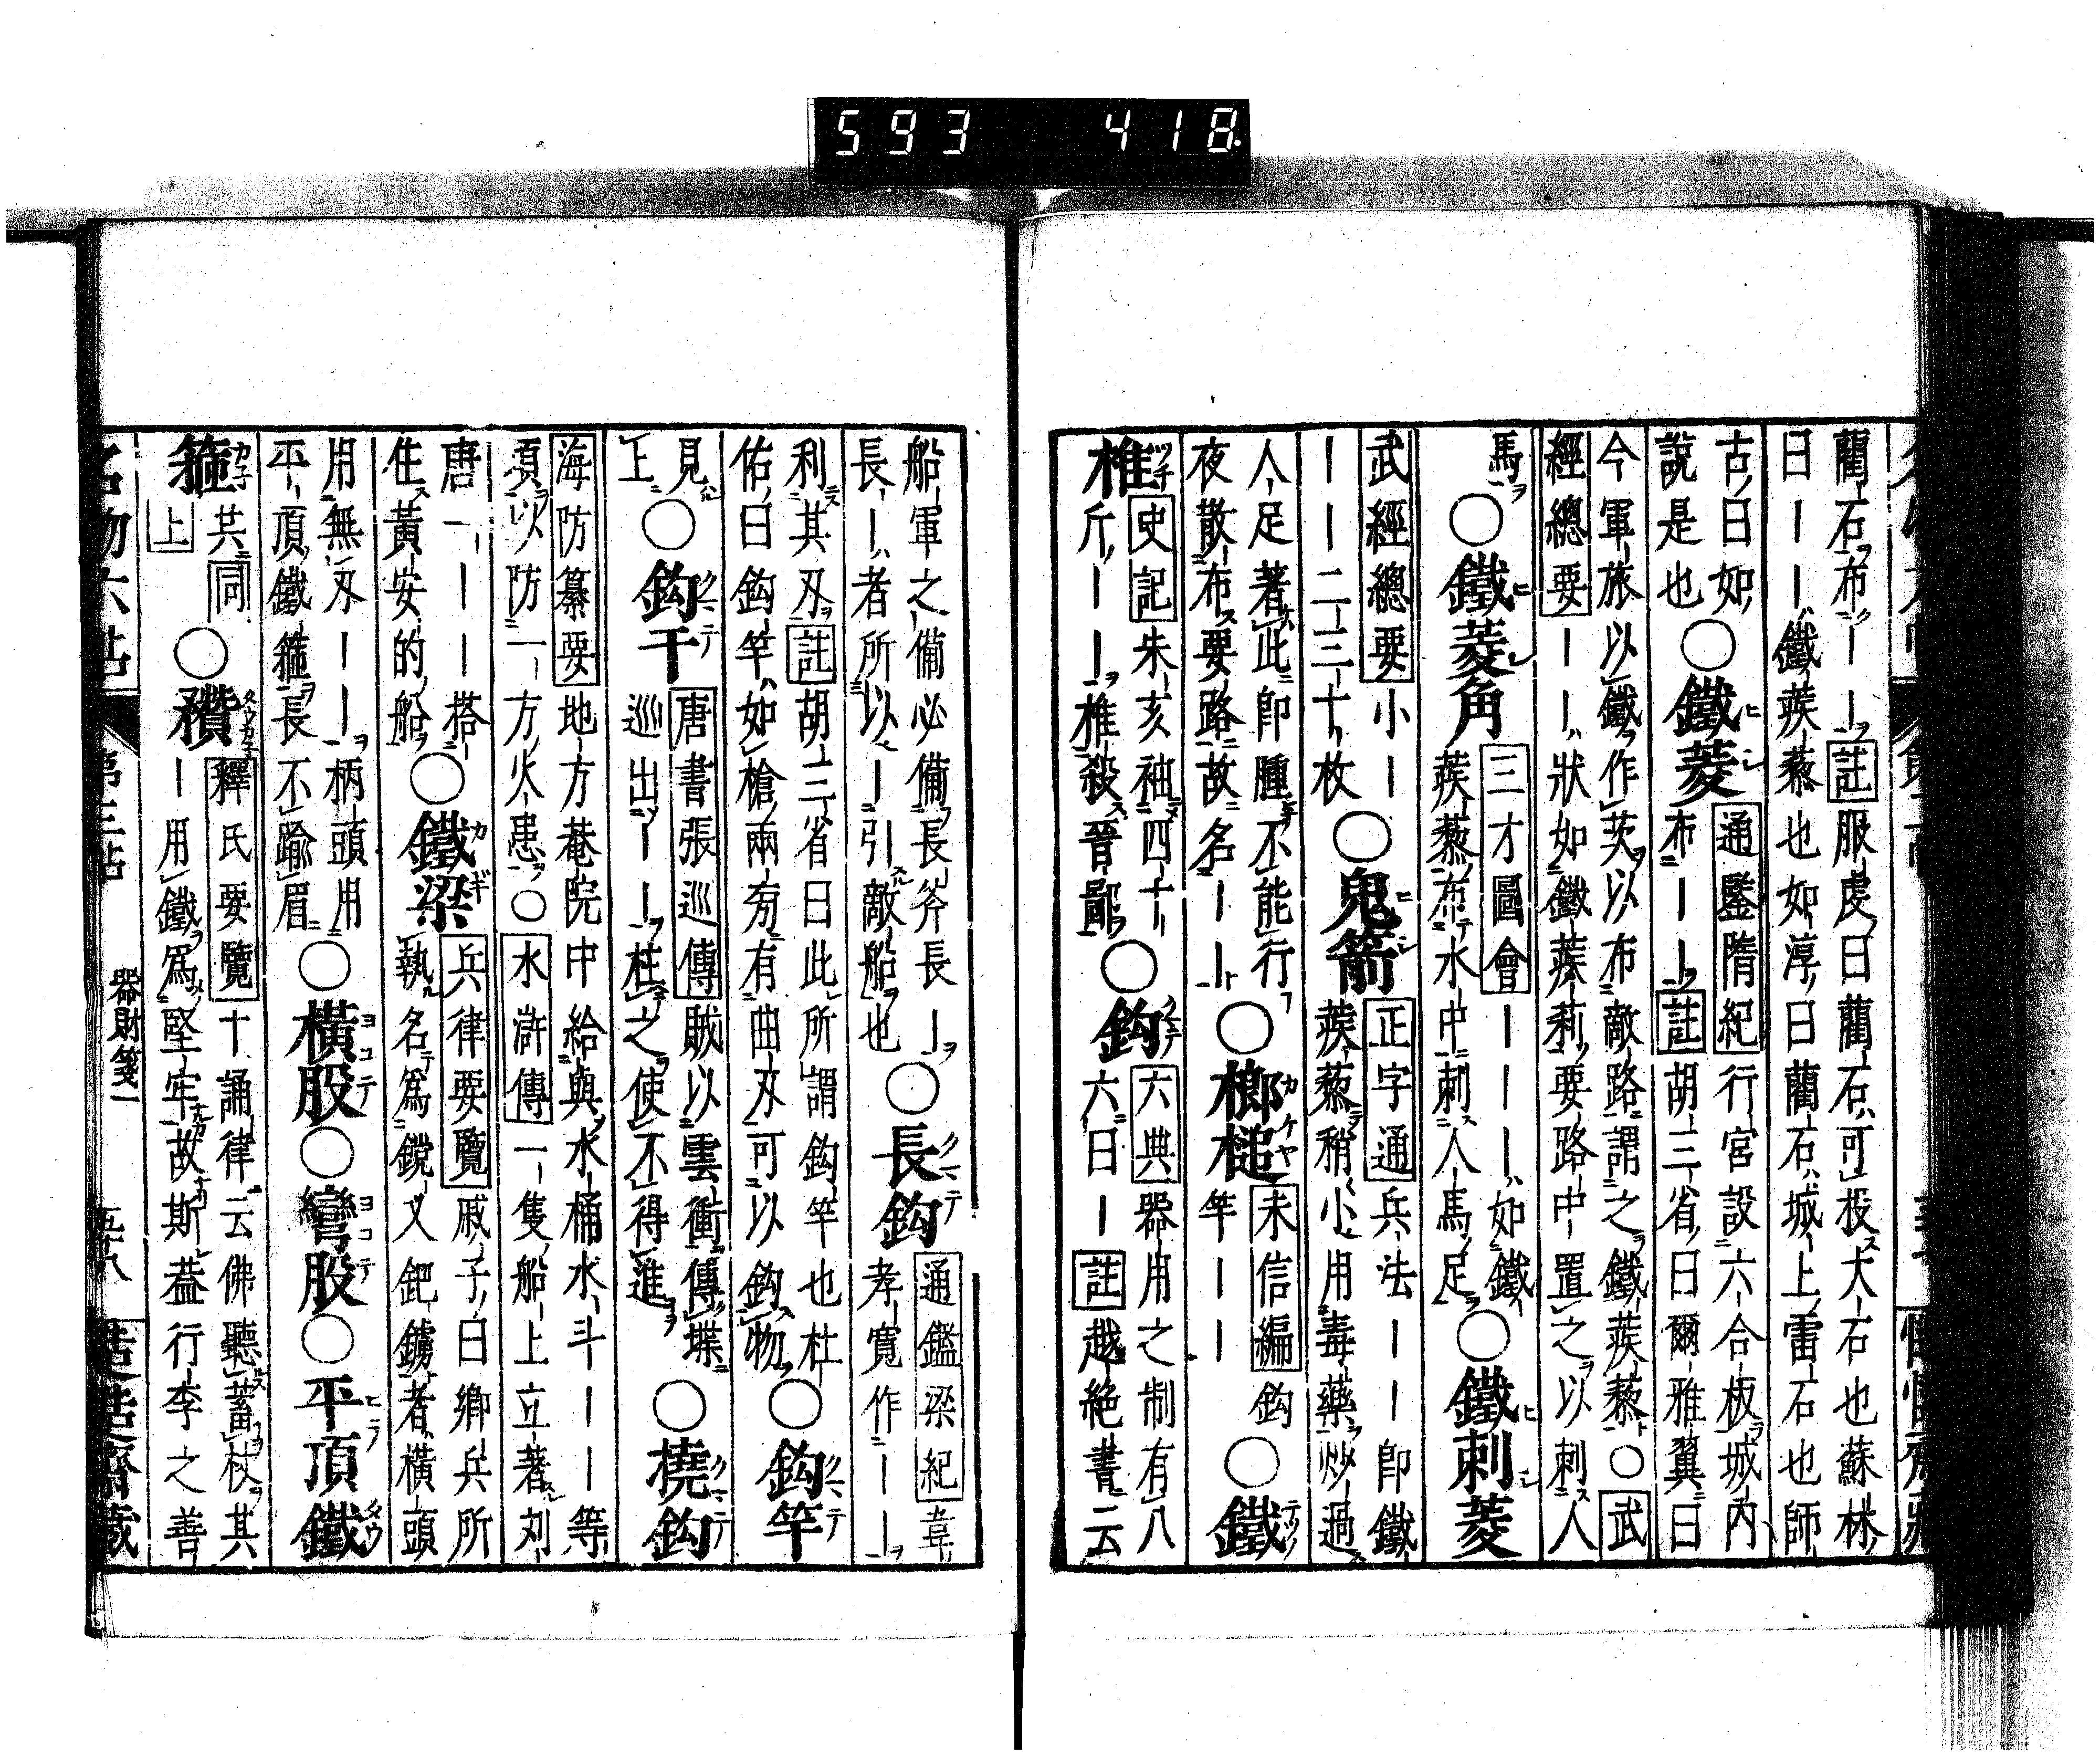 593 418
藺石布｜｜註服虔曰藺石可投大石也蘇林
曰｜｜鐵蒺藜也如淳曰藺石城上雷石也師
古曰如
說是也○鐵菱通鑒隋紀行宮設六合板城內
布｜｜註胡三省曰爾雅翼曰
今軍旅以鐵作茨以布敵路謂之鐵蒺藜○武
經總要｜｜｜狀如鐵蒺莉要路中置之以刺人
馬○鐵菱角三才圖會｜｜｜如鐵
蒺藜布水中刺人馬足○鐵刺菱
武經總要小｜
｜｜二三十枚○鬼箭正字通兵法｜｜即鐵
蒺藜稍小用毒藥炒過
人足著此即腫不能行
夜散布要路故名｜｜○榔槌未信編鈎
竿｜｜○鐵
椎史記朱亥袖四十
斤｜｜椎殺晉鄙○鈎六典器用之制有八
六曰｜註越絶書云
船軍之備必備長斧長｜
長｜者所以｜引敵船也○長鈎通鑑梁紀韋
孝寬作｜｜
利其刃註胡三省曰此所謂鈎竿也杜
佑曰鈎竿如槍兩旁有曲刃可以鈎物○鈎竿
見
上○鈎干唐書張巡傳賊以雲衝傳堞
巡出｜｜柱之使不得進○撓鈎
海防纂要地方菴院中給與水桶水斗｜｜等
項以防一方火患○水滸傳一隻船上立著刘
唐一｜｜搭
住黃安的船○鐵梁兵律要覽戚子曰鄉兵所
執名爲鎲叉鈀鐋者橫頭
用無刃｜｜柄頭用
平頂鐵箍長不踰眉○橫股○彎股○平頂鐵
箍共同
上○穳釋氏要覽十誦律云佛聽蓄杖其
｜用鐵爲堅牢故斯蓋行李之善
名物六帖 第三帖 器財箋一 五十八